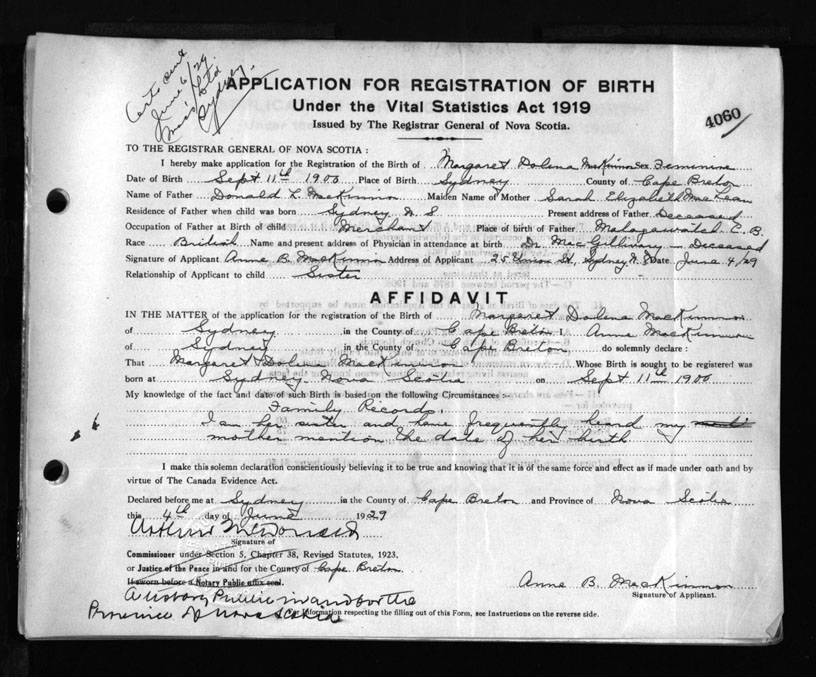 Cert sent
June 6/29
Sydney.
APPLICATION FOR REGISTRATION OF BIRTH
Under the Vital Statistics Act 1919
Issued by The Registrar General of Nova Scotia.
4060
TO THE REGISTRAR GENERAL OF NOVA SCOTIA :
I hereby make application for the Registration of the Birth of Margaret Dolena MacKinnon Sex. Feminine
Date of Birth Sept 11th 1900 Place of Birth Sydney County of Cape Breton
Name of Father Donald L. MacKinnon Maiden Name of Mother Sarah Elizabeth MacLean
Residence of Father when child was born Sydney N S Present address of Father Deceased
Occupation of Father at Birth of child Merchant Place of birth of Father Malagawatch C. B.
Race British Name and present address of Physician in attendance at birth Dr. MacGillivary - Deceased
Signature of Applicant Anne B. MacKinnon Address of Applicant 25 Union St, Sydney N.S Date June 4/29
Relationship of Applicant to child Sister
AFFIDAVIT
IN THE MATTER of the application for the registration of the Birth of Margaret Dolena MacKinnon
of Sydney in the County of Cape Breton I Anne MacKinnon
of Sydney in the County of Cape Breton do solemnly declare :
That Margaret Dolena MacKinnon Whose Birth is sought to be registered was
born at Sydney Nova Scotia on Sept 11th 1900
My knowledge of the fact and date of such Birth is based on the following Circumstances :
Family Records.
I am her sister and have frequently heard my
mother mention the date of her birth
I make this solemn declaration conscientiously believing it to be true and knowing that it is of the same force and effect as if made under oath and by
virtue of The Canada Evidence Act.
Declared before me at Sydney in the County of Cape Breton and Province of Nova Scotia
this 4th day of June 1929
Arthur McDonald
Signature of
Commissioner under Section 5, Chapter 38, Revised Statutes, 1923,
or Justice of the Peace in and for the County of Cape Breton.
If sworn before a Notary Public affix seal.
Anne B. MacKinnon
Signature of Applicant.
A Notary Public in and for the
Province of Nova Scotia
For Information respecting the filling out of this Form, see Instructions on the reverse side.